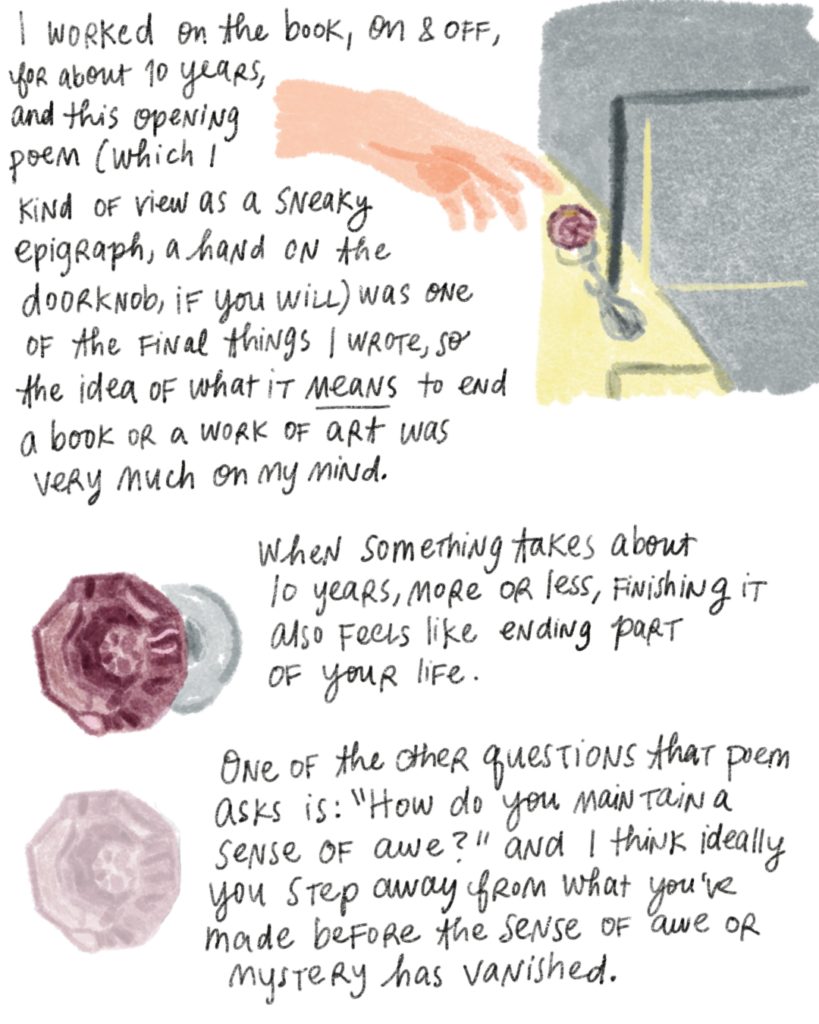 I worked on the book, on & off,
for about 10 years,
and this opening
poem (which I
kind of view as a sneaky
epigraph, a hand on the
doorknob, if you will) was one
of the final things I wrote, so
the idea of what it means to end
a book or a work of art was
very much on my mind.
When something takes about
10 years, more or less, finishing it
also feels like ending part
of your life.
One of the other questions that poem
asks is: "How do you maintain a
sense of awe?" and I think ideally
you step away from what you've
made before the sense of awe or
mystery has vanished.